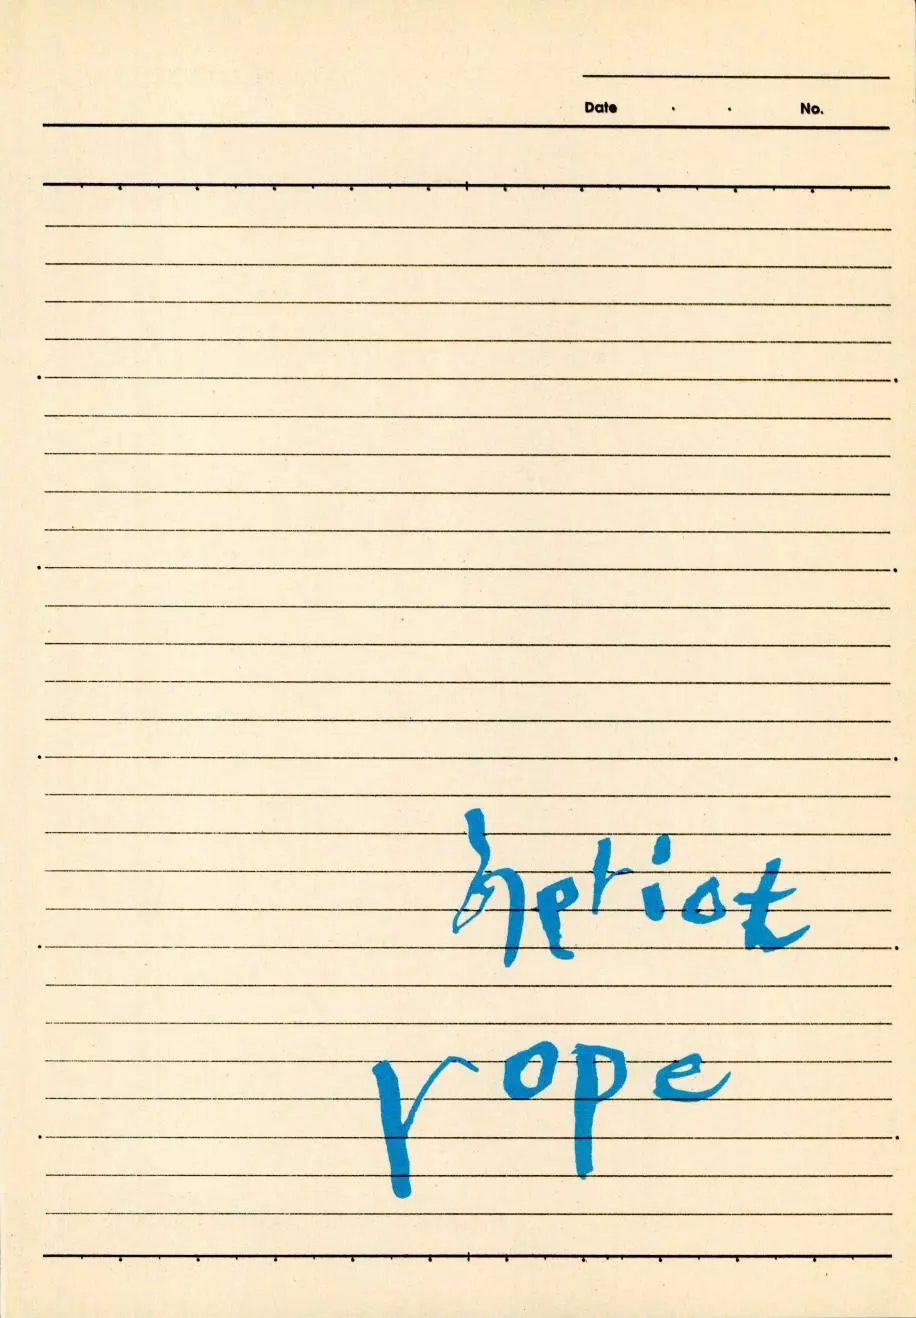 Date . . No.
heriot
rope